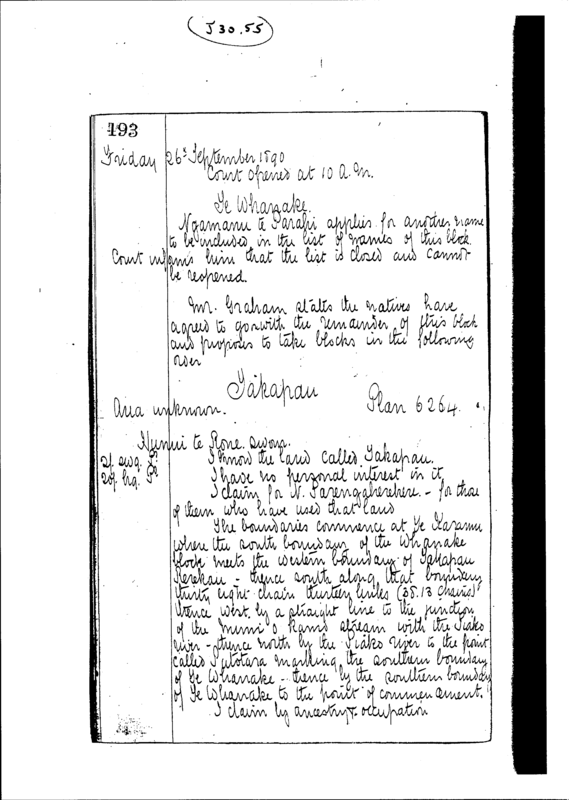 J 30.55
193
Friday 26th September 1890
Court opened at 10 A.M.
Te Whanake.
Ngamanu te applies for another name
to be included in the list of names of this block.
Court informs him that the list is closed and cannot
be reopened.
Mr. Graham states the natives have
agreed to go with the remainder of this block
and proposes to take blocks in the following
order
Takapau
Area unknown. Plan 6264.
te Rone sworn.
2/. swg.
20/. hg.
I know the land called Takapau.
I have no personal interest in it.
I claim for N. - for those
of them who have used that land
The boundaries commence at Te Karamu
where the south boundary of the Whanake
block meets the western boundary of Takapau
- thence south along that boundary
thirty eight chain thirteen links (38.13 chains)
thence west by a straight line to the junction
of the stream with the Piako
river - thence north by the Piako river to the point
called marking the southern boundary
of Te Whanake - thence by the southern boundary
of Te Whanake to the point of commencement.
I claim by ancestry & occupation